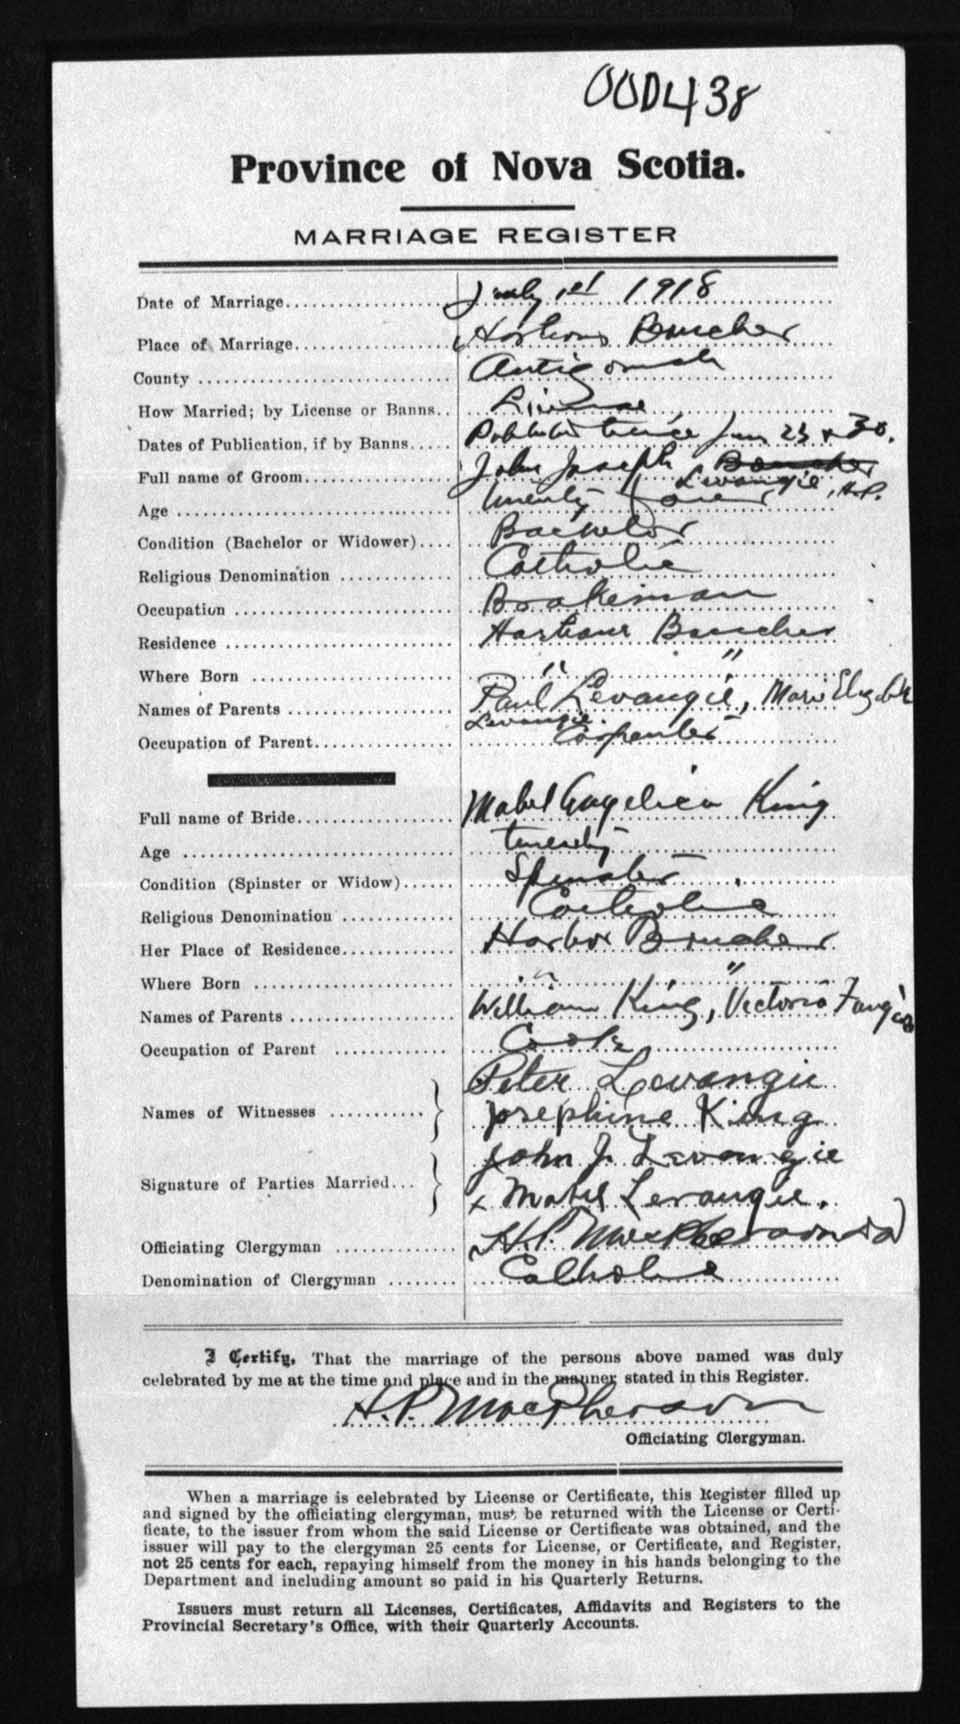 00D438
Province of Nova Scotia.
MARRIAGE REGISTER
Date of Marriage July 1st 1918
Place of Marriage Harbour Boucher
County Antigonish
How Married; by License or Banns License
Dates of Publication, if by Banns twice Jun 23 & 30.
Full name of Groom John Joseph Boucher
Levangie, H.P.
Age twenty four
Condition (Bachelor or Widower) Bachelor
Religious Denomination Catholic
Occupation Brakeman
Residence Harbour Boucher
Where Born " "
Names of Parents Paul Levangie, Mary Elizabeth
Levangie.
Occupation of Parent Carpenter
Full name of Bride Mabel Angelica King
Age twenty
Condition (Spinster or Widow) Spinster
Religious Denomination Catholic
Her Place of Residence Harbor Boucher
Where Born " "
Names of Parents William King, Victoria
Occupation of Parent Cook
Names of Witnesses Peter Levangie
Josephine King
Signature of Parties Married John J. Levangie
x Mabel Levangie.
Officiating Clergyman H.P. MacPherson
Denomination of Clergyman Catholic
I Certify, That the marriage of the persons above named was duly
celebrated by me at the time and place and in the manner stated in this Register.
H.P. MacPherson
Officiating Clergyman.
When a marriage is celebrated by License or Certificate, this Register filled up
and signed by the officiating clergyman, must be returned with the License or Certi-
ficate, to the issuer from whom the said License or Certificate was obtained, and the
issuer will pay to the clergyman 25 cents for License, or Certificate, and Register,
not 25 cents for each, repaying himself from the money in his hands belonging to the
Department and including amount so paid in his Quarterly Returns.
Issuers must return all Licenses, Certificates, Affidavits and Registers to the
Provincial Secretary's Office, with their Quarterly Accounts.